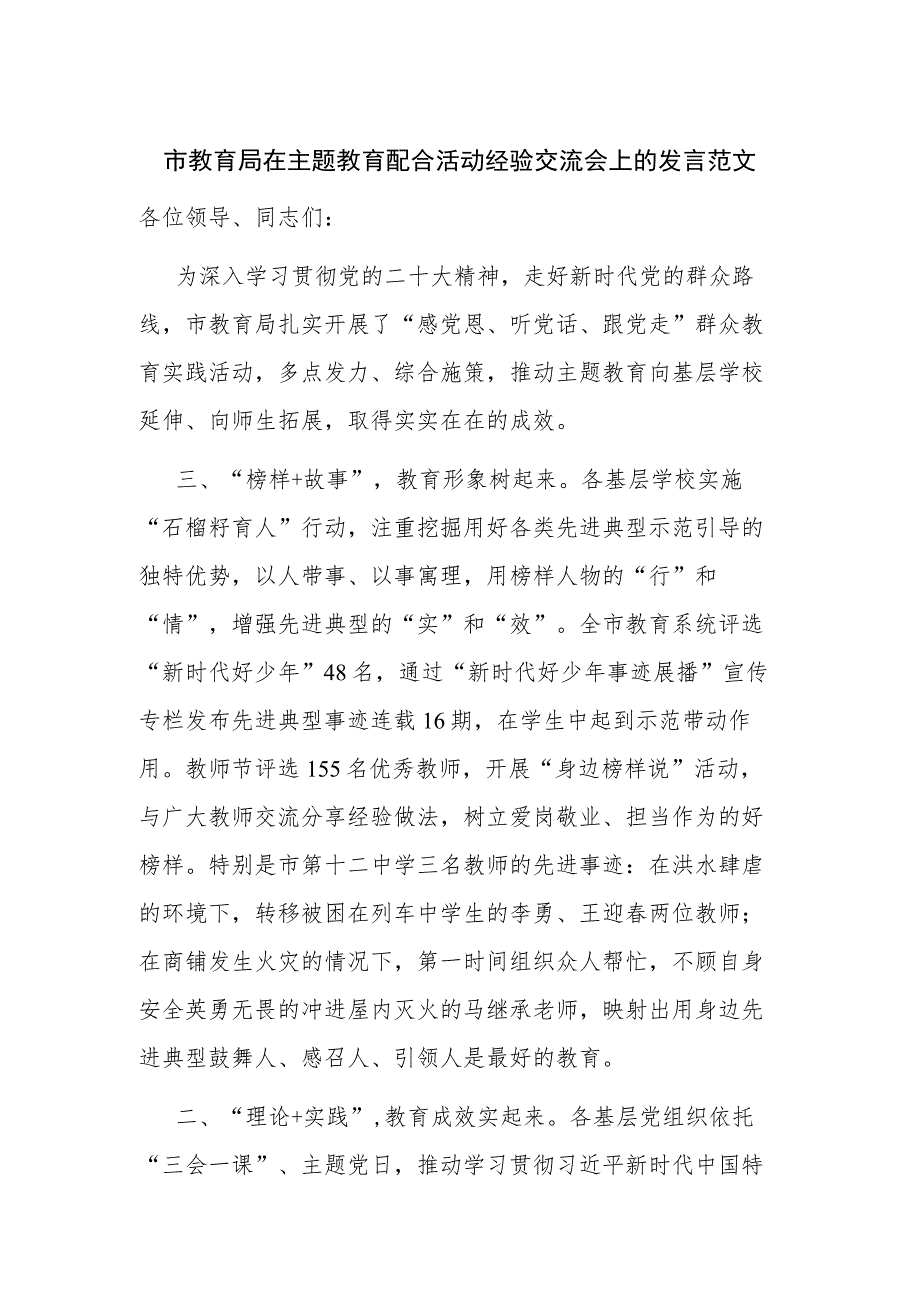 市教育局在主题教育配合活动经验交流会上的发言范文
各位领导、同志们：
为深入学习贯彻党的二十大精神，走好新时代党的群众路
线，市教育局扎实开展了“感党恩、听党话、跟党走”群众教
育实践活动，多点发力、综合施策，推动主题教育向基层学校
延伸、向师生拓展，取得实实在在的成效。
三、“榜样+故事”，教育形象树起来。各基层学校实施
“石榴籽育人”行动，注重挖掘用好各类先进典型示范引导的
独特优势，以人带事、以事寓理，用榜样人物的“行”和
“情”，增强先进典型的“实”和“效”。全市教育系统评选
“新时代好少年”48名，通过“新时代好少年事迹展播”宣传
专栏发布先进典型事迹连载16期，在学生中起到示范带动作
用。教师节评选155名优秀教师，开展“身边榜样说”活动，
与广大教师交流分享经验做法，树立爱岗敬业、担当作为的好
榜样。特别是市第十二中学三名教师的先进事迹：在洪水肆虐
的环境下，转移被困在列车中学生的李勇、王迎春两位教师；
在商铺发生火灾的情况下，第一时间组织众人帮忙，不顾自身
安全英勇无畏的冲进屋内灭火的马继承老师，映射出用身边先
进典型鼓舞人、感召人、引领人是最好的教育。
二、“理论+实践”,教育成效实起来。各基层党组织依托
“三会一课”、主题党日，推动学习贯彻习近平新时代中国特